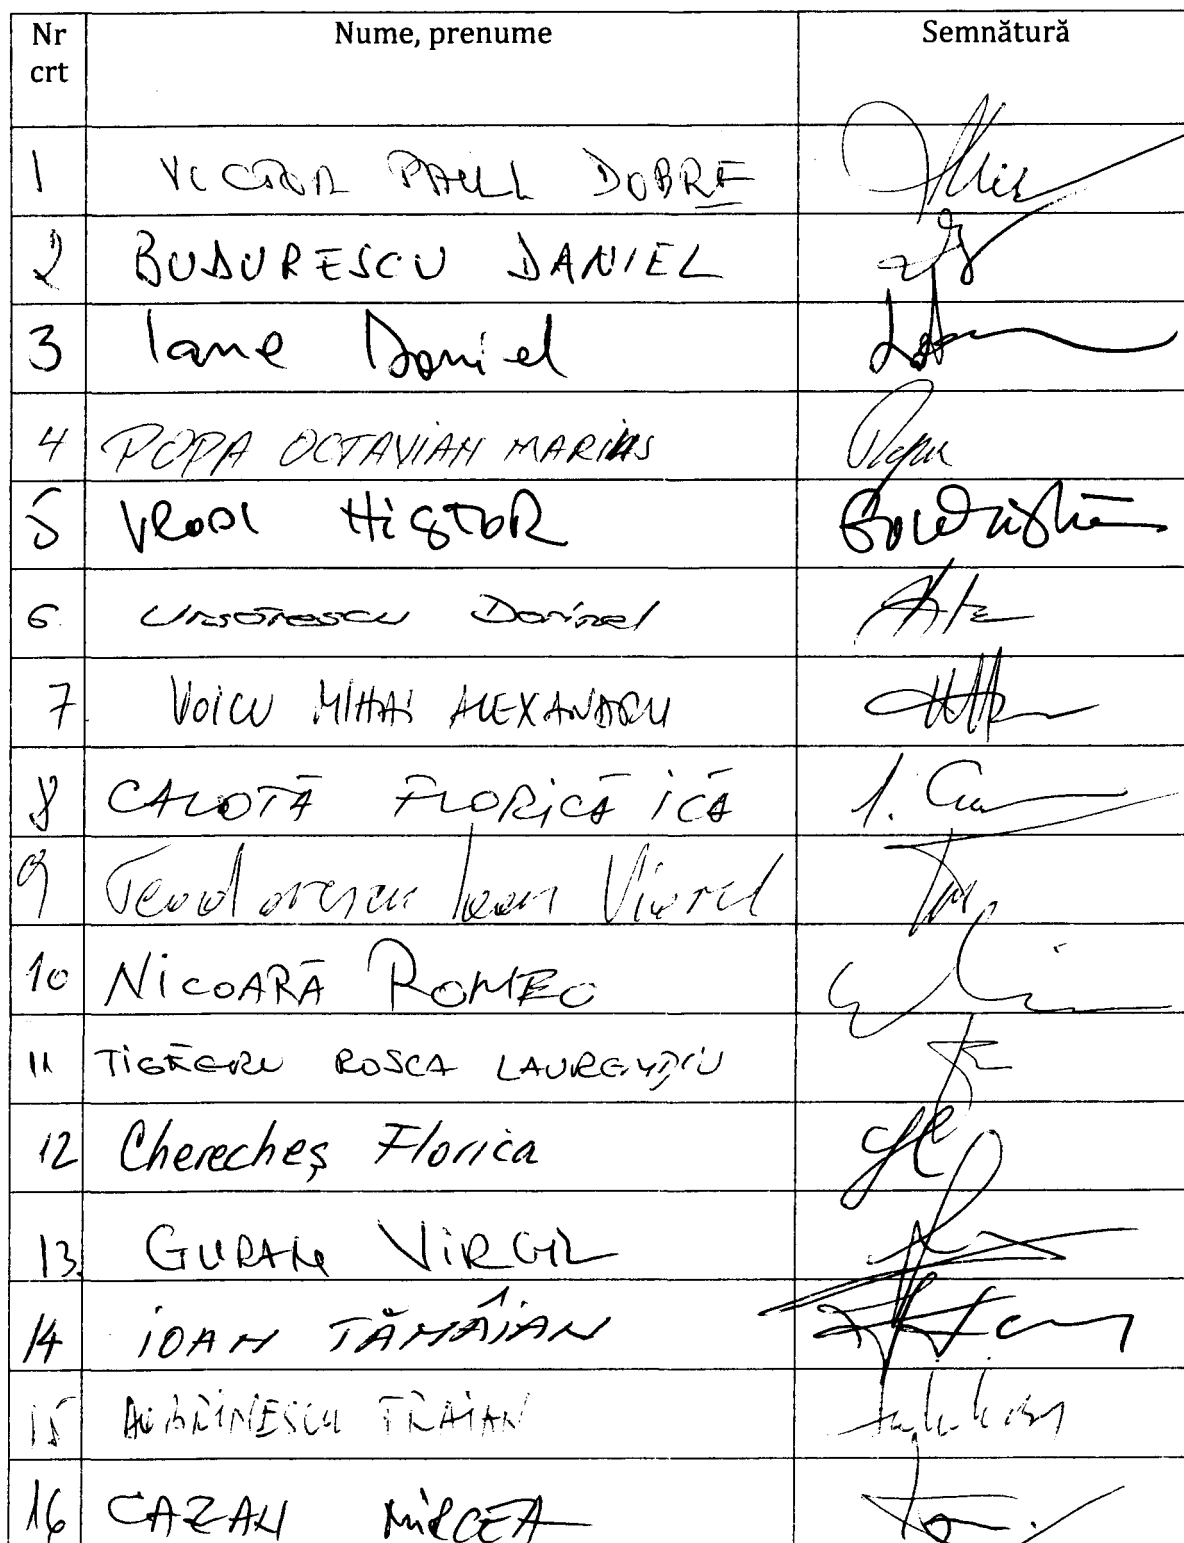 Nr crt Nume, prenume Semnătură
1 VICTOR PAUL DOBRE
2 BUDURESCU DANIEL
3 Iane Daniel
4 POPA OCTAVIAN MARIUS
5
6 Ursărescu Dorinel
7 VOICU MIHAI ALEXANDRU
8 CALOTĂ FLORICĂ ICĂ
9 Teodorescu Ioan Viorel
10 NICOARĂ ROMEO
11 TIGĂERU ROȘCA LAURENȚIU
12 Cherecheș Florica
13. GURAN VIRGIL
14 IOAN TĂMÂIAN
15 TRAIAN
16 CAZAN MIRCEA